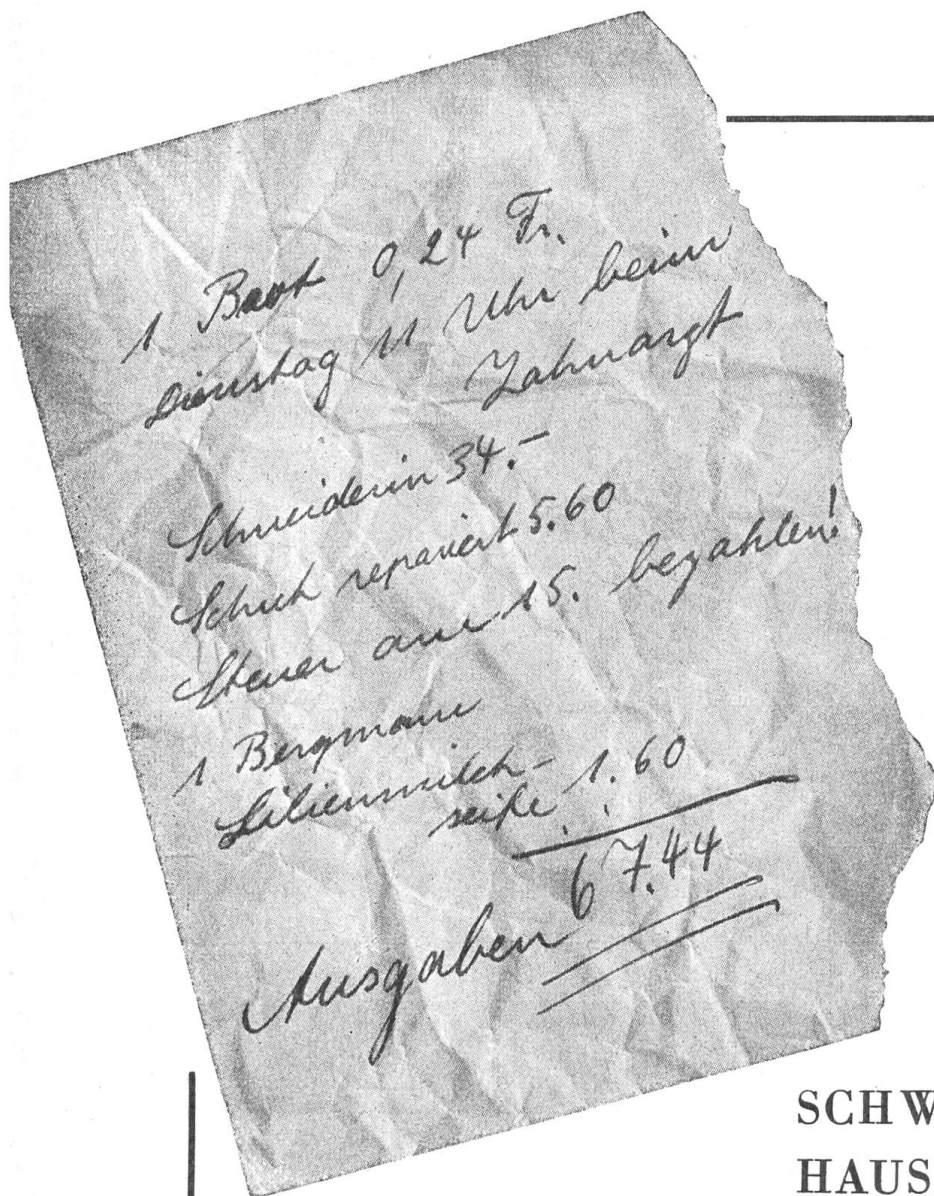 1 Brot 0,24 Fr.
Dienstag 11 Uhr beim
Zahnarzt
Schneiderin 34.–
Schuh repariert 5.60
Steuer am 15. bezahlen!
1 Bergmann
Lilienmilch-
seife 1.60
67.44
Ausgaben
SCHW
HAUS